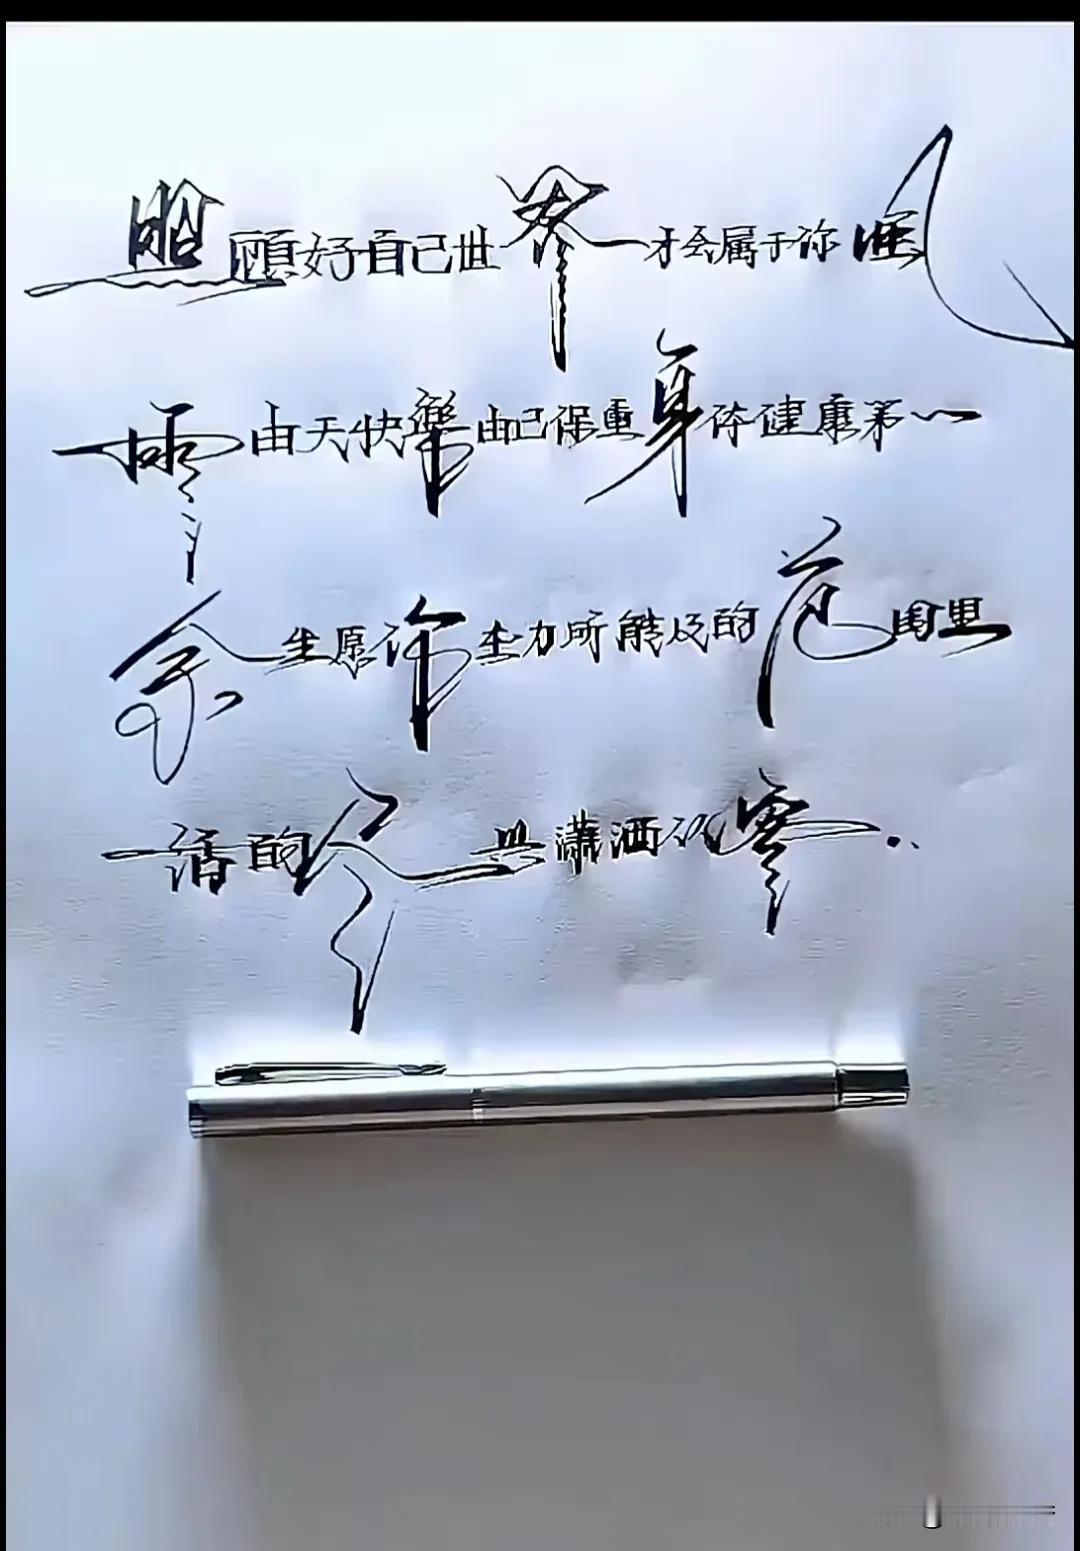 照顾好自己世界才会属于你風
雲由天快樂由己保重身体健康第一
余生愿你在力所能及的范围里
活的尽兴潇洒